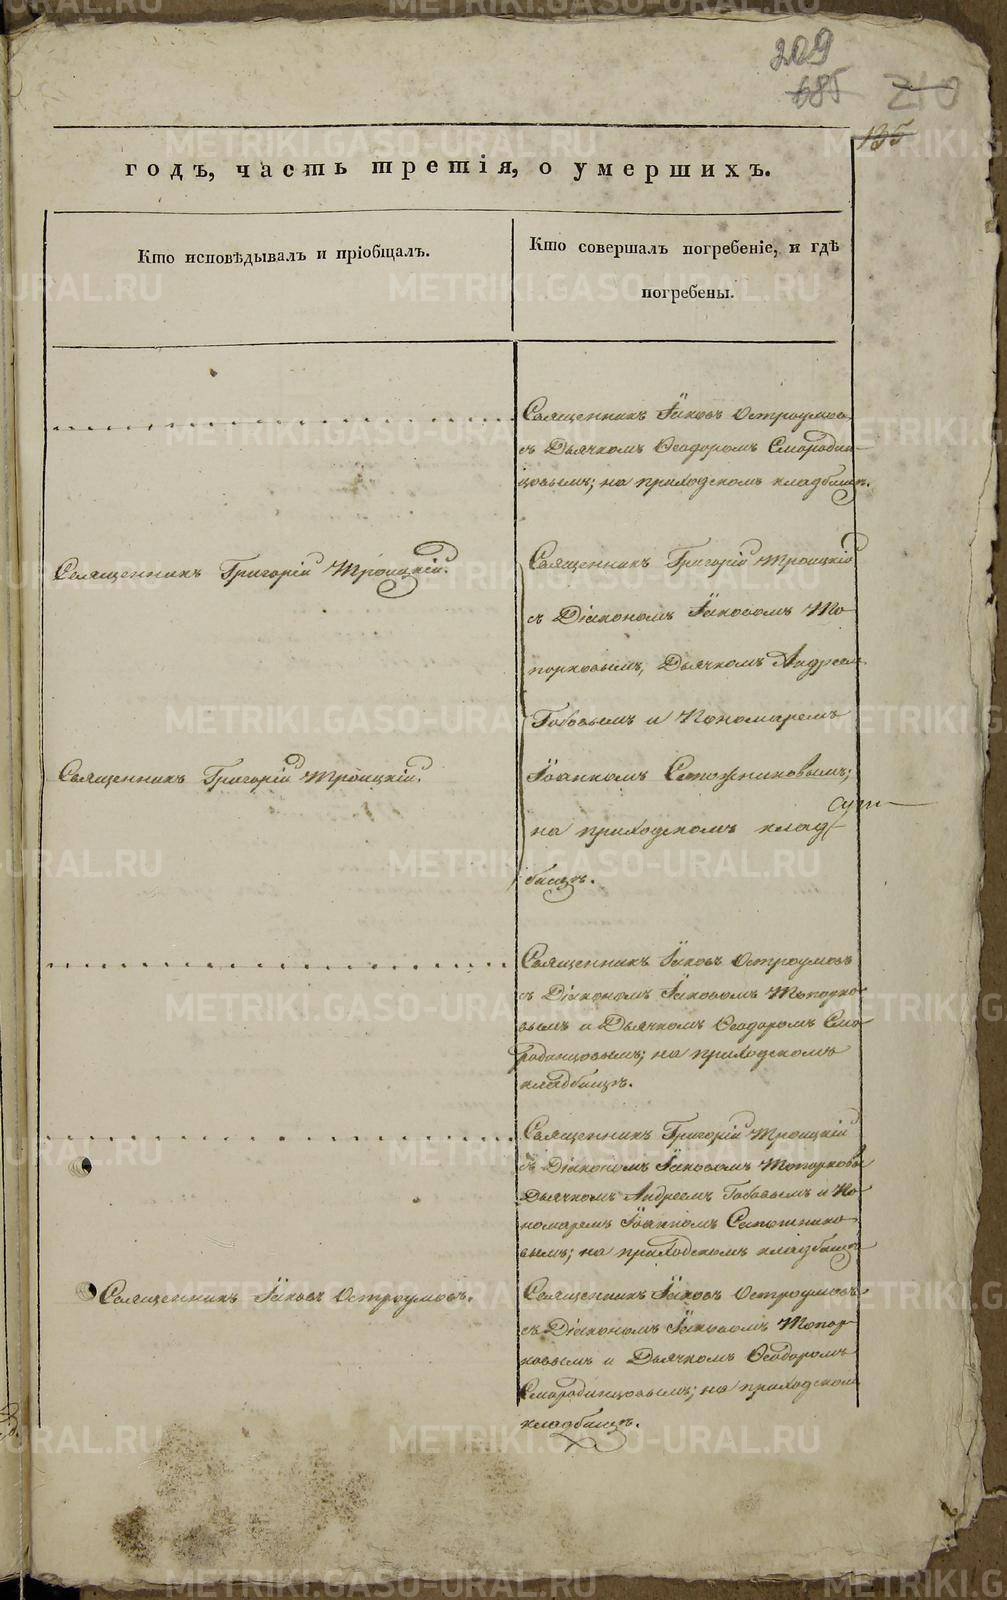 209
685
210
135
годъ, часть третія, о умершихъ.
Кто исповѣдывалъ и пріобщалъ.
Кто совершалъ погребеніе, и гдѣ
погребены.
Священникъ Іаковъ Остроумовъ
съ Дьячкомъ Ѳеодоромъ Смородин-
цовымъ; на приходскомъ кладбищѣ.
Священникъ Григорій Троицкій.
Священникъ Григорій Троицкій
съ Діакономъ Іаковомъ То
порковымъ, Дьячкомъ Андреем
Бабовымъ и Пономаремъ
Священникъ Григорій Троицкій.
Іоанномъ Сапожниковымъ;
на приходскомъ клад-
бищѣ.
Священникъ Іаковъ Остроумовъ
съ Діакономъ Іаковомъ Топорко
вымъ и Дьячкомъ Ѳеодоромъ Смо
родинцовымъ; на приходскомъ
кладбищѣ.
Священникъ Григорій Троицкій
съ Діакономъ Іаковомъ Топорковы
Дьячкомъ Андреемъ Бабовымъ и По
номаремъ Іоанномъ Сапожнико
вымъ; на приходскомъ кладбищѣ
Священникъ Іаковъ Остроумовъ.
Священникъ Іаковъ Остроумовъ
съ Діакономъ Іаковомъ Топор-
ковымъ и Дьячкомъ Ѳеодоромъ
Смородинцовымъ; на приходском
кладбищѣ.
METRIKI.GASO-URAL.RU